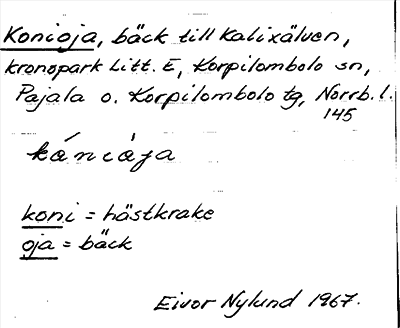 Konioja, bäck till Kalixälven,
kronopark Litt. E, Korpilombolo sn,
Pajala o. Korpilombolo tg, Norrb. l.
145
kóniója
koni = hästkrake
oja = bäck
Eivor Nylund 1967.